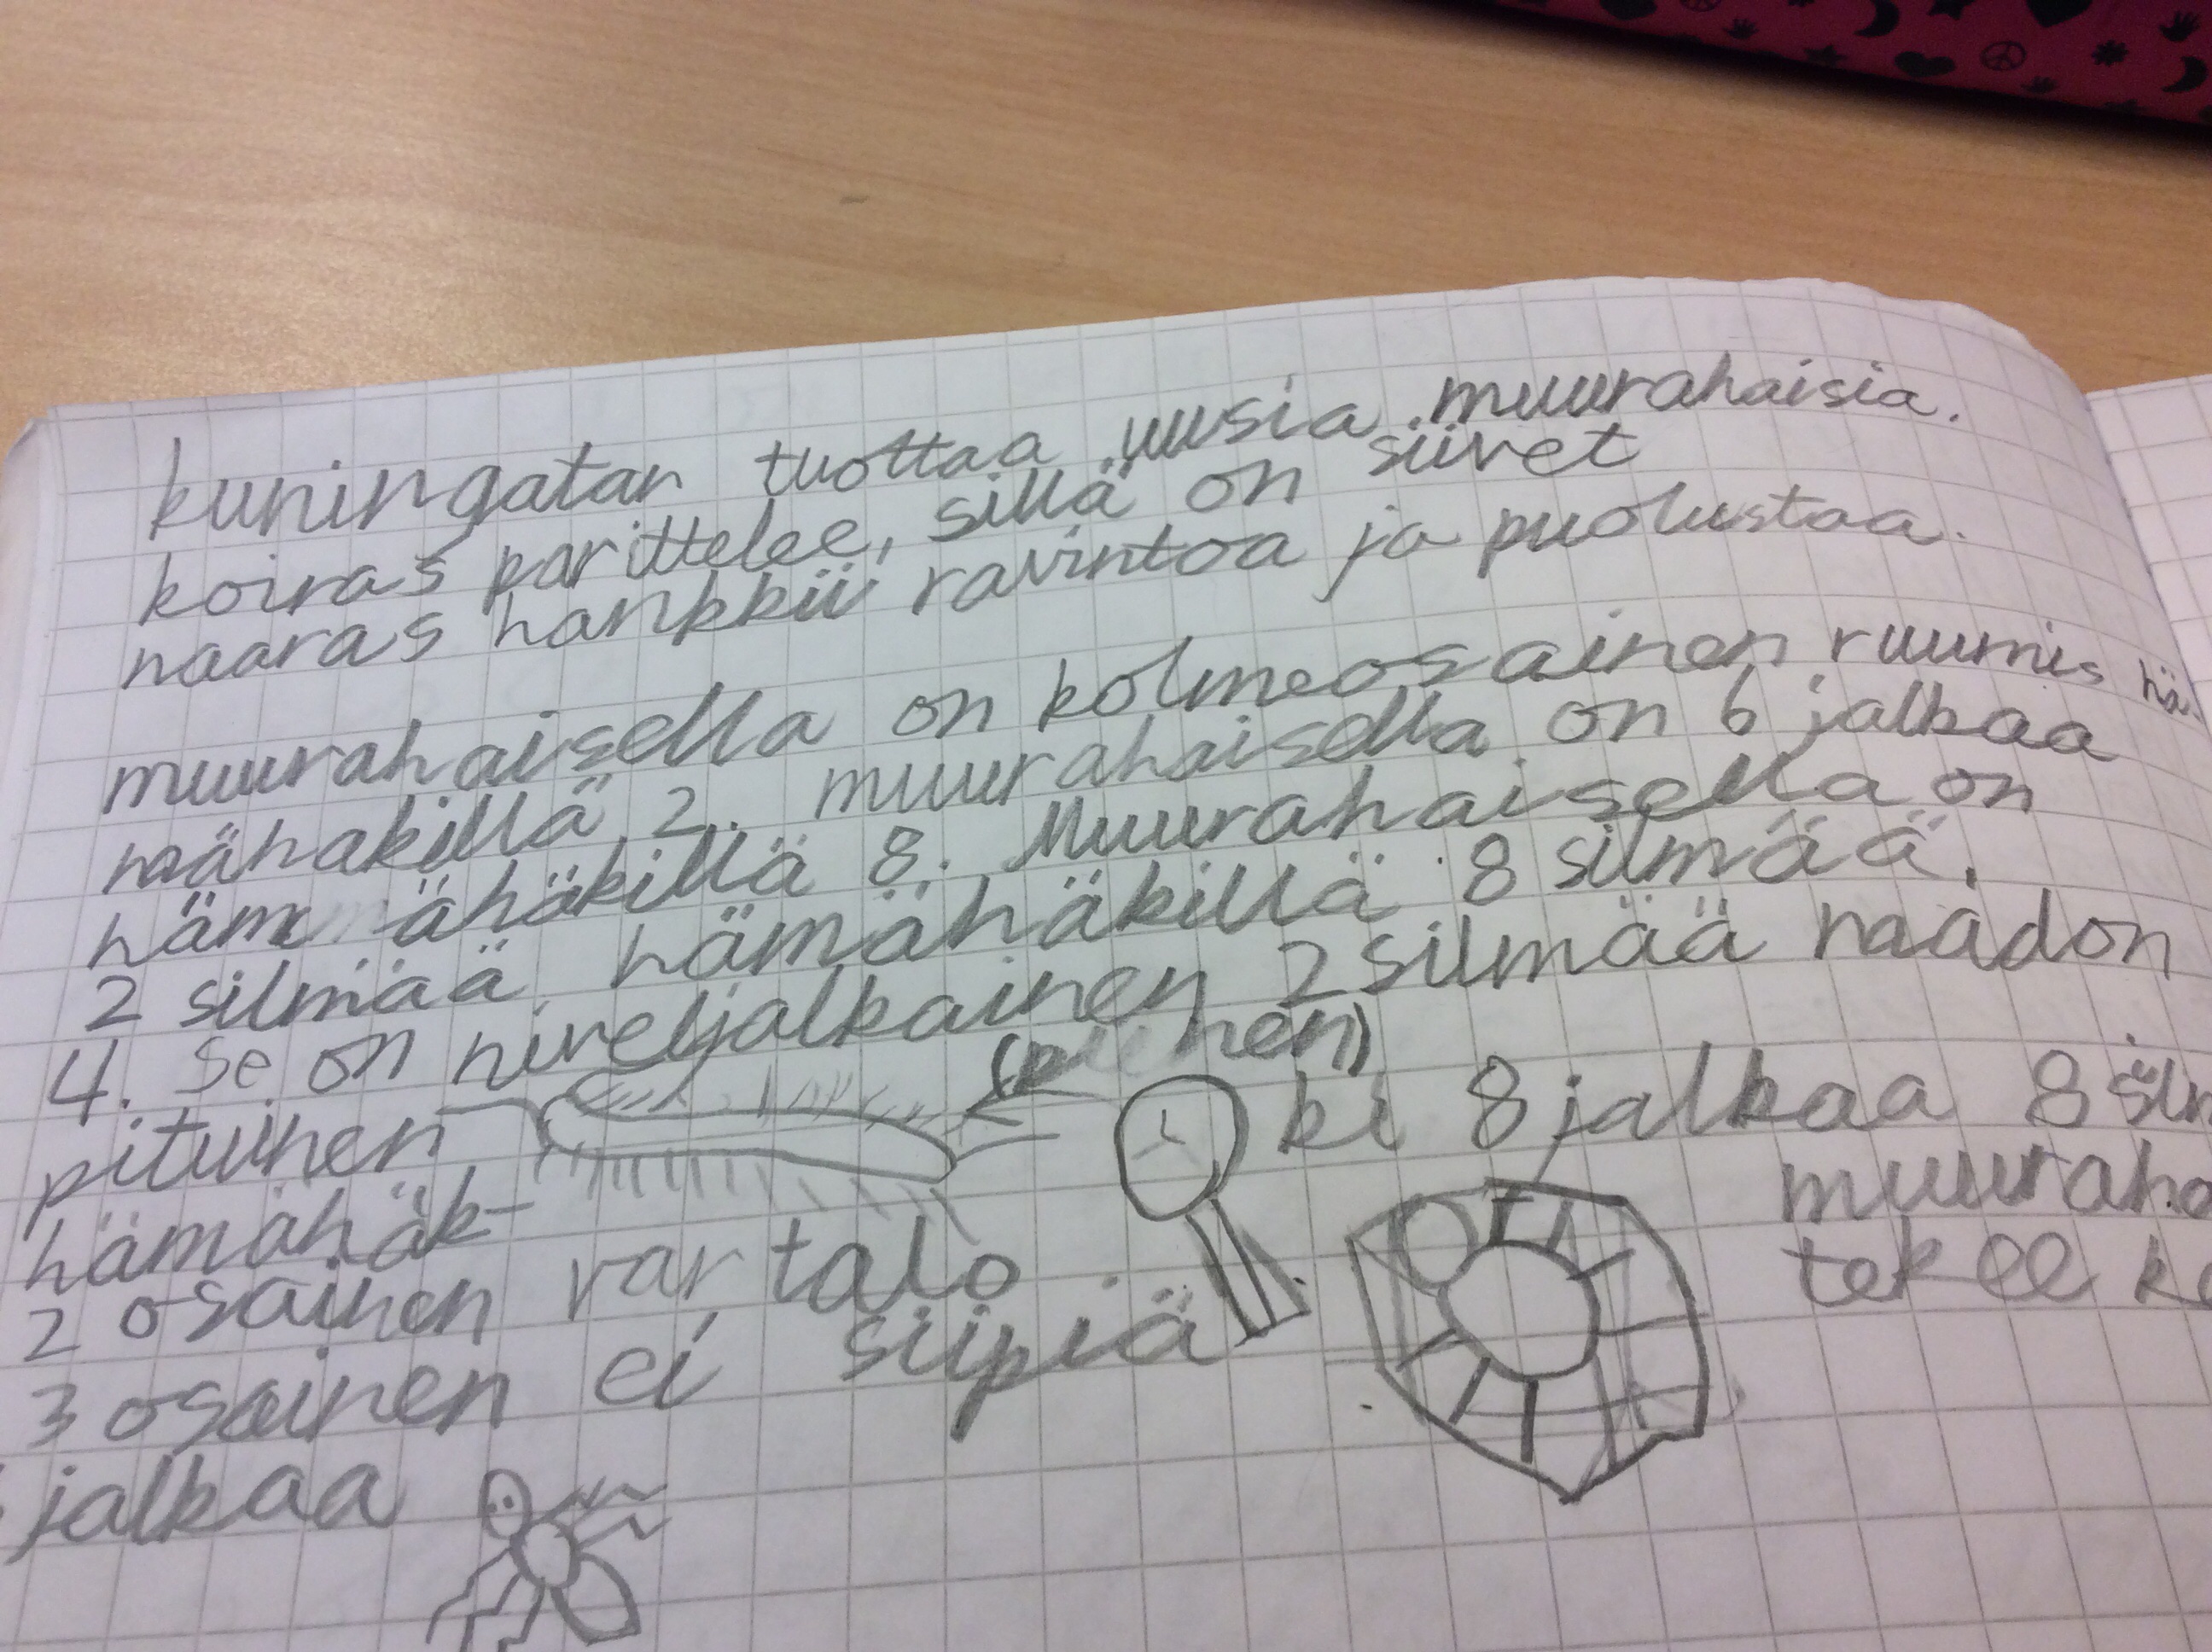 kuningatar tuottaa uusia muurahaisia.
koiras parittelee, sillä on siivet
naaras hankkii ravintoa ja puolustaa.
muurahaisella on kolmeosainen ruumis hä-
mähäkillä 2. muurahaisella on 6 jalkaa
hämähäkillä 8. Muurahaisella on
2 silmää. hämähäkillä 8 silmää.
4. se on niveljalkainen 2 silmää raadon
pituinen
hämähäk- ki 8 jalkaa 8 silm
2 osainen vartalo muuraha
3 osainen ei siipiä tekee ke
jalkaa